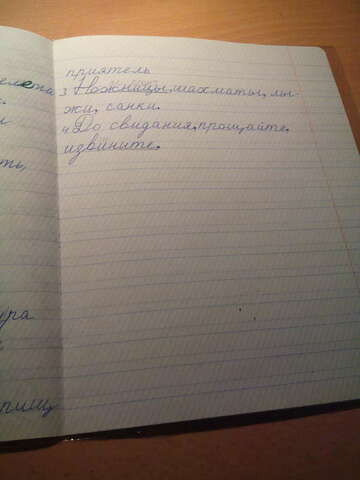 елена
ть,
ура
пишу
приятель
3 Ножницы, шахматы, лы-
жи, санки.
4 До свидания, прощайте,
извините.